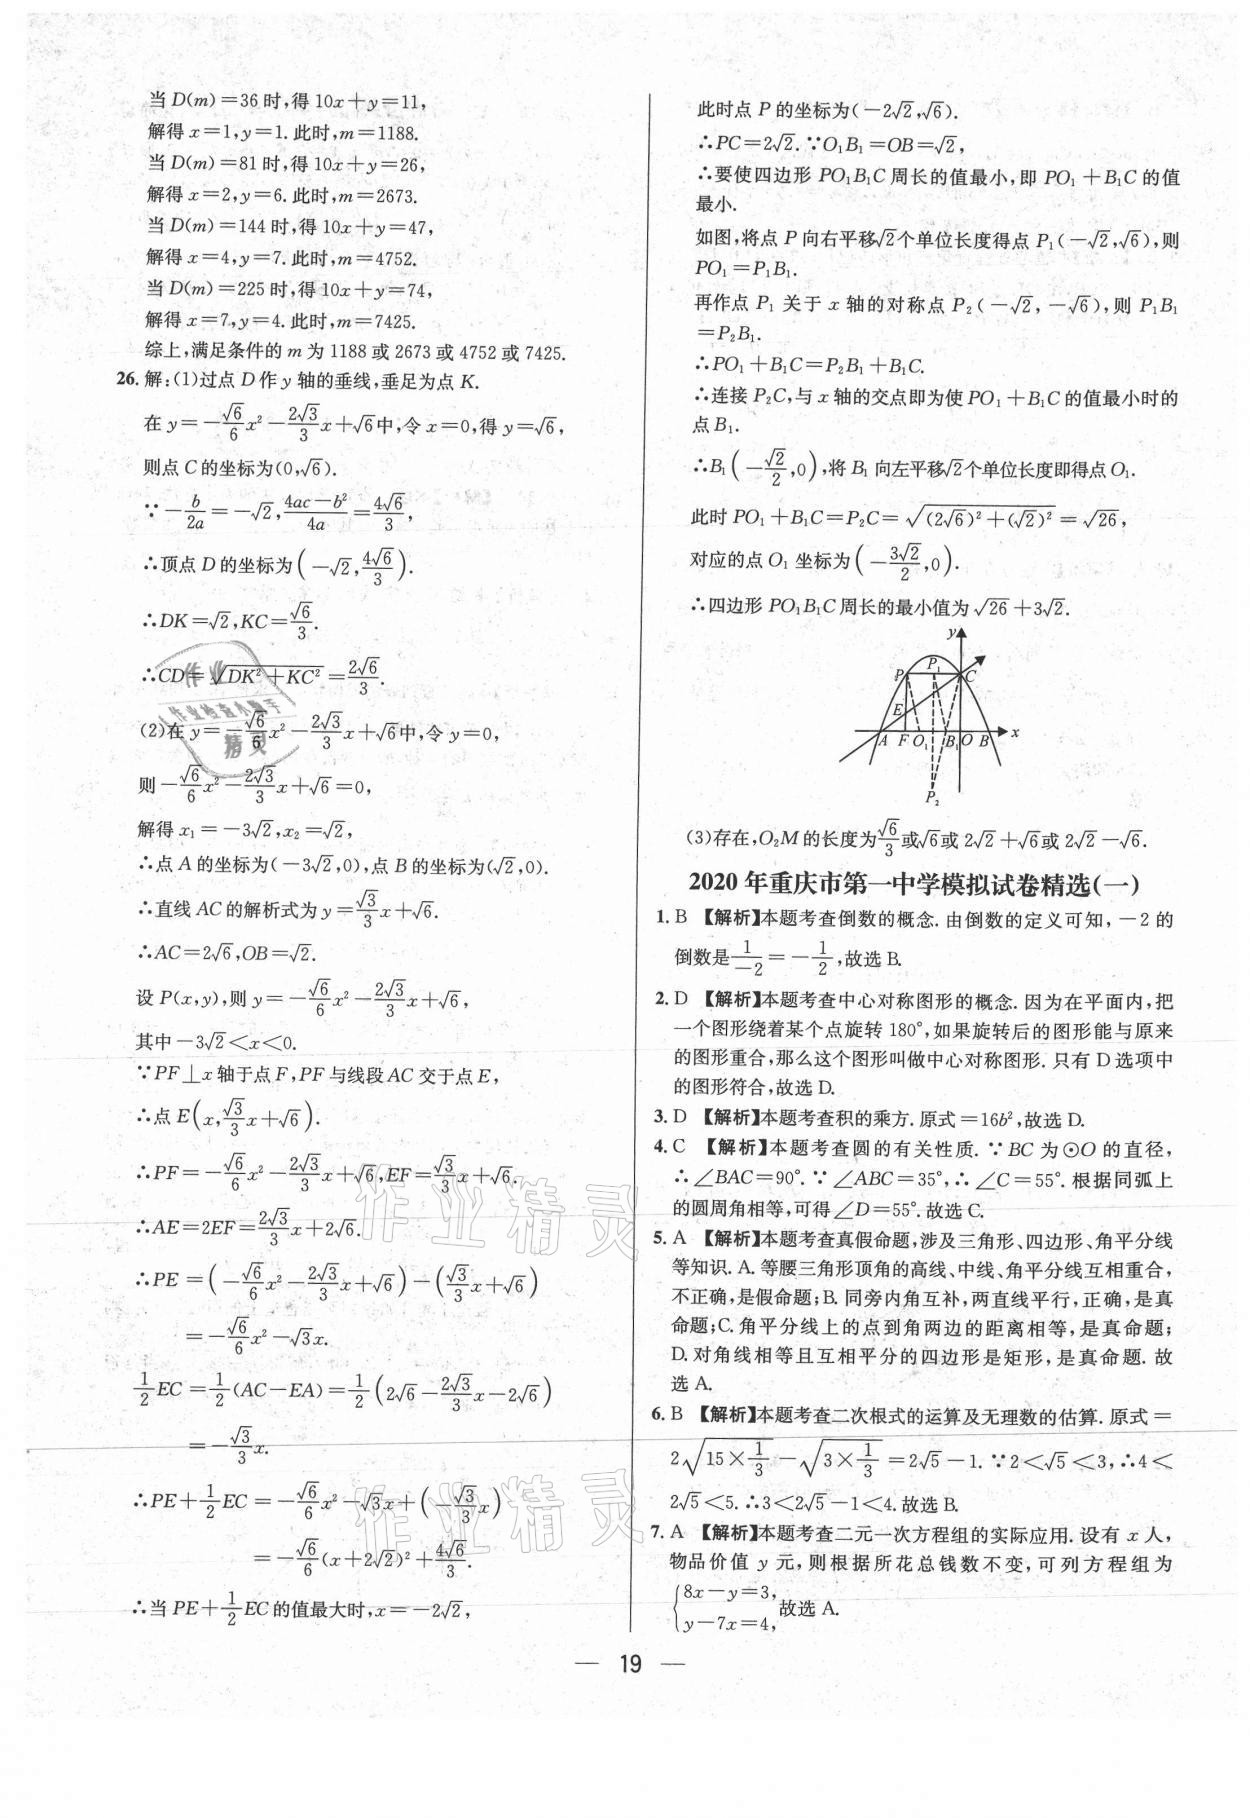 当 D(m)=36 时,得 10x+y=11,
解得 x=1,y=1. 此时,m=1188.
当 D(m)=81 时,得 10x+y=26,
解得 x=2,y=6. 此时,m=2673.
当 D(m)=144 时,得 10x+y=47,
解得 x=4,y=7. 此时,m=4752.
当 D(m)=225 时,得 10x+y=74,
解得 x=7,y=4. 此时,m=7425.
综上,满足条件的 m 为 1188 或 2673 或 4752 或 7425.
26. 解:(1)过点 D 作 y 轴的垂线,垂足为点 K.
在 y=-√6/6 x²-2√3/3 x+√6中,令 x=0,得 y=√6,
则点 C 的坐标为(0,√6).
∵-b/2a=-√2,(4ac-b²)/4a=4√6/3,
∴顶点 D 的坐标为(-√2,4√6/3).
∴DK=√2,KC=√6/3.
∴CD=√(DK²+KC²)=2√6/3.
(2)在 y=-√6/6 x²-2√3/3 x+√6中,令 y=0,
则-√6/6 x²-2√3/3 x+√6=0,
解得 x₁=-3√2,x₂=√2,
∴点 A 的坐标为(-3√2,0),点 B 的坐标为(√2,0).
∴直线 AC 的解析式为 y=√3/3 x+√6.
∴AC=2√6,OB=√2.
设 P(x,y),则 y=-√6/6 x²-2√3/3 x+√6,
其中-3√2<x<0.
∵PF⊥x 轴于点 F,PF 与线段 AC 交于点 E,
∴点 E(x,√3/3 x+√6).
∴PF=-√6/6 x²-2√3/3 x+√6,EF=√3/3 x+√6.
∴AE=2EF=2√3/3 x+2√6.
∴PE=(-√6/6 x²-2√3/3 x+√6)-(√3/3 x+√6)
=-√6/6 x²-√3x.
1/2 EC=1/2(AC-EA)=1/2(2√6-2√3/3 x-2√6)
=-√3/3 x.
∴PE+1/2 EC=-√6/6 x²-√3x+(-√3/3 x)
=-√6/6(x+2√2)²+4√6/3.
∴当 PE+1/2 EC 的值最大时,x=-2√2,
此时点 P 的坐标为(-2√2,√6).
∴PC=2√2.∵O₁B₁=OB=√2,
∴要使四边形 PO₁B₁C 周长的值最小,即 PO₁+B₁C 的值
最小.
如图,将点 P 向右平移√2个单位长度得点 P₁(-√2,√6),则
PO₁=P₁B₁.
再作点 P₁ 关于 x 轴的对称点 P₂(-√2,-√6),则 P₁B₁
=P₂B₁.
∴PO₁+B₁C=P₂B₁+B₁C.
∴连接 P₂C,与 x 轴的交点即为使 PO₁+B₁C 的值最小时的
点 B₁.
∴B₁(-√2/2,0),将 B₁ 向左平移√2个单位长度即得点 O₁.
此时 PO₁+B₁C=P₂C=√((2√6)²+(√2)²)=√26,
对应的点 O₁ 坐标为(-3√2/2,0).
∴四边形 PO₁B₁C 周长的最小值为√26+3√2.
y
P P₁ C
E
A F O₁ B₁ O B x
P₂
(3)存在,O₂M 的长度为√6/3或√6或 2√2+√6或 2√2-√6.
2020 年重庆市第一中学模拟试卷精选(一)
1. B 【解析】本题考查倒数的概念. 由倒数的定义可知,-2 的
倒数是1/-2=-1/2,故选 B.
2. D 【解析】本题考查中心对称图形的概念. 因为在平面内,把
一个图形绕着某个点旋转 180°,如果旋转后的图形能与原来
的图形重合,那么这个图形叫做中心对称图形. 只有 D 选项中
的图形符合,故选 D.
3. D 【解析】本题考查积的乘方. 原式=16b²,故选 D.
4. C 【解析】本题考查圆的有关性质. ∵BC 为⊙O 的直径,
∴∠BAC=90°. ∵∠ABC=35°,∴∠C=55°. 根据同弧上
的圆周角相等,可得∠D=55°. 故选 C.
5. A 【解析】本题考查真假命题,涉及三角形、四边形、角平分线
等知识. A. 等腰三角形顶角的高线、中线、角平分线互相重合,
不正确,是假命题;B. 同旁内角互补,两直线平行,正确,是真
命题;C. 角平分线上的点到角两边的距离相等,是真命题;
D. 对角线相等且互相平分的四边形是矩形,是真命题. 故
选 A.
6. B 【解析】本题考查二次根式的运算及无理数的估算. 原式=
2√(15×1/3)-√(3×1/3)=2√5-1. ∵2<√5<3,∴4<
2√5<5. ∴3<2√5-1<4. 故选 B.
7. A 【解析】本题考查二元一次方程组的实际应用. 设有 x 人,
物品价值 y 元,则根据所花总钱数不变,可列方程组为
{8x-y=3,
y-7x=4,故选 A.
— 19 —
作业精灵
作业精灵
作业
作业检查小助手
精灵